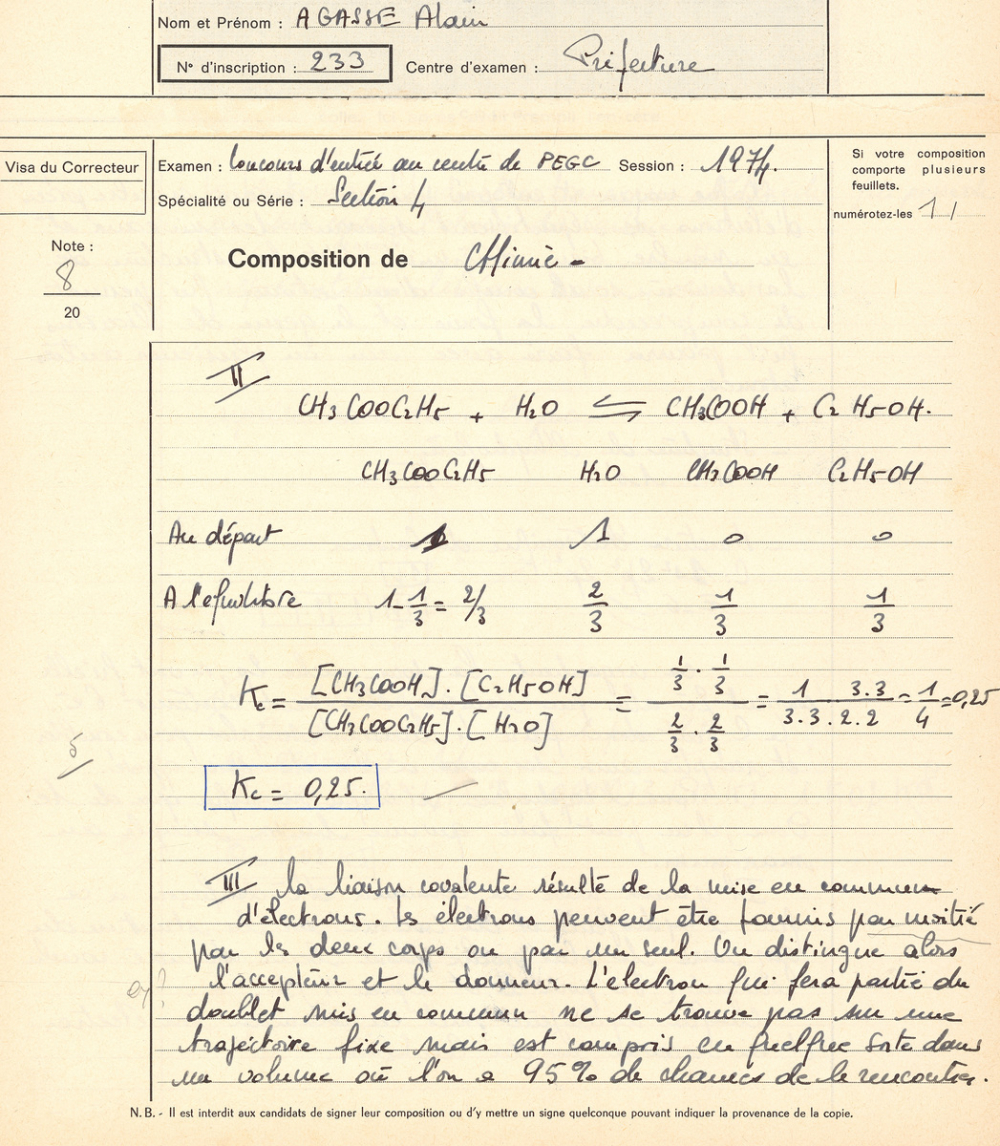 Nom et Prénom : AGASSE Alain
N° d'inscription : 233
Centre d'examen : Préfecture
Visa du Correcteur
Examen : Concours d'entrée au centre de PEGC Session : 1974.
Spécialité ou Série : Section 4
Si votre composition
comporte plusieurs
feuillets.
numérotez-les 1/
Note :
8
20
Composition de Chimie -
II
CH3 COOC2H5 + H2O ⇌ CH3COOH + C2H5OH.
CH3COOC2H5 H2O CH3COOH C2H5OH
Au départ 1 1 0 0
A l'equilibre 1-1/3 = 2/3 2/3 1/3 1/3
Kc = [CH3COOH] . [C2H5OH] / [CH3COOC2H5] . [H2O] = 1/3 . 1/3 / 2/3 . 2/3 = 1 3.3 / 3.3.2.2 = 1/4 = 0,25
5
Kc = 0,25.
III la liaison covalente résulte de la mise en commun
d'électrons. Les électrons peuvent être fournis par moitié
par les deux corps ou par un seul. On distingue alors
l'accepteur et le donneur. L'électron qui fera partie du
doublet mis en commun ne se trouve pas sur une
trajectoire fixe mais est compris en quelque sorte dans
un volume où l'on a 95% de chances de le rencontrer.
N. B. - Il est interdit aux candidats de signer leur composition ou d'y mettre un signe quelconque pouvant indiquer la provenance de la copie.